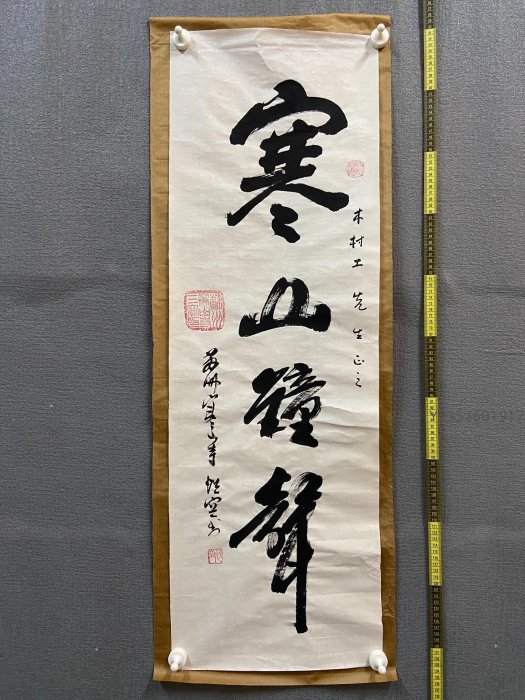 寒山鐘聲
木村工先生正之
蘇州寒山寺性空书